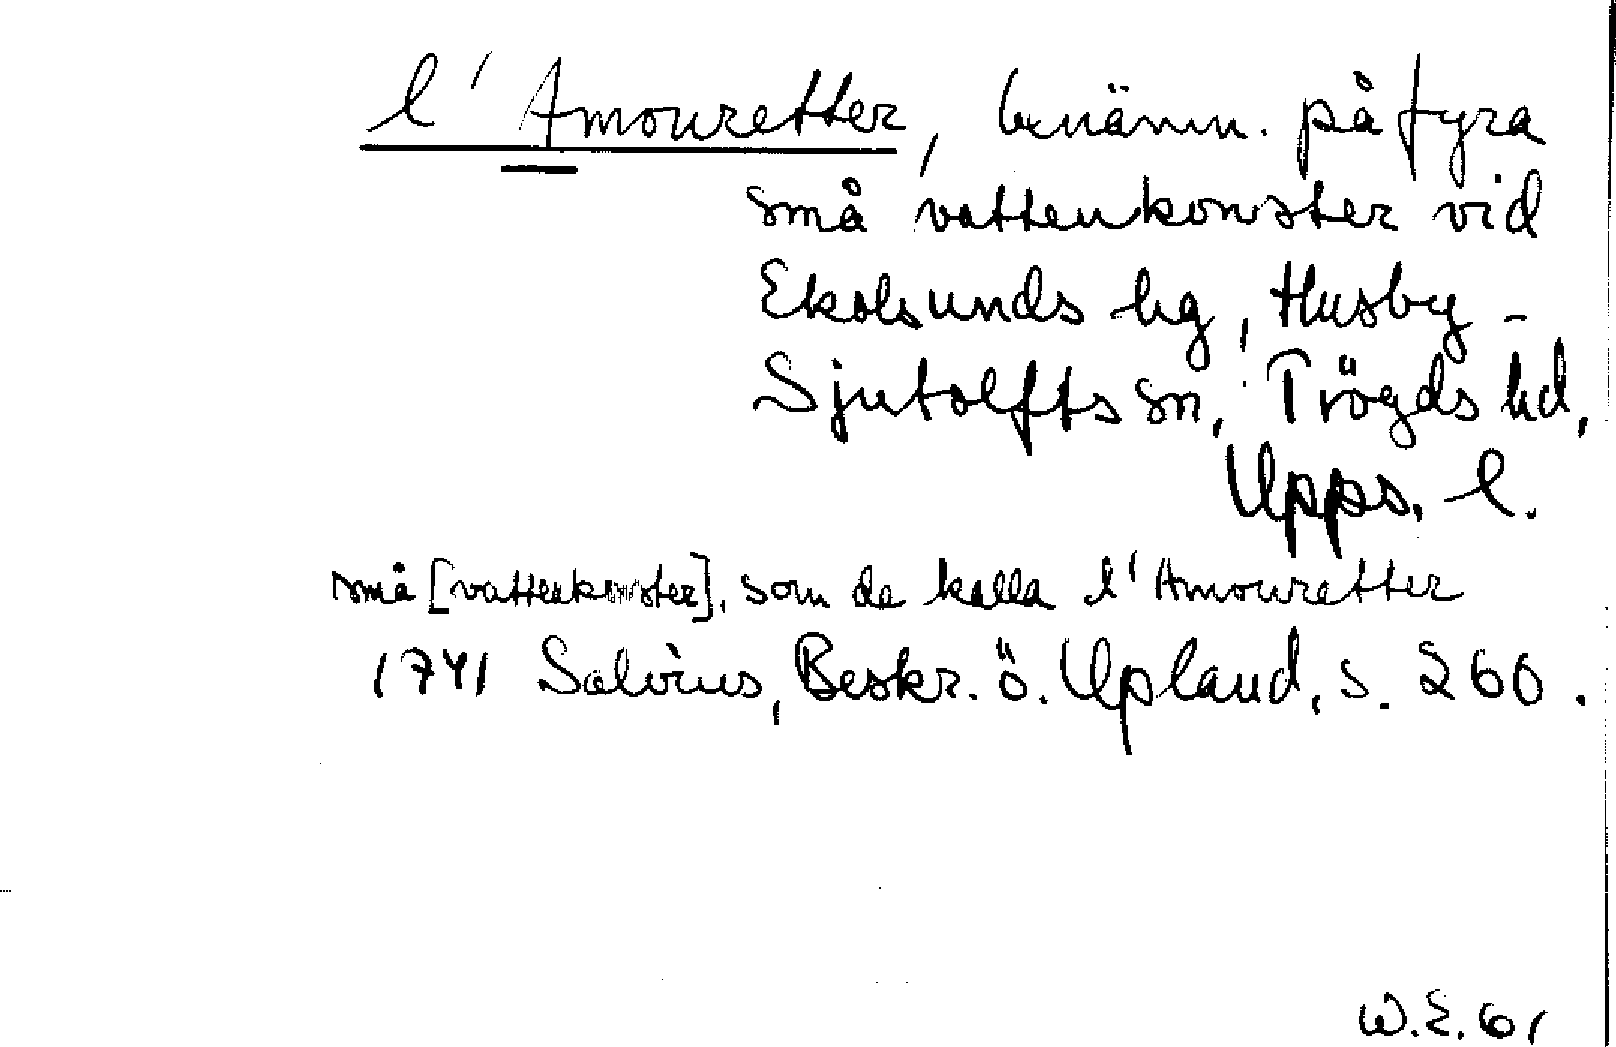 l'Amouretter, benämn. på fyra
små vattenkonster vid
Ekolsunds hg, Husby-
Sjutolfts sn, Trögds hd,
Upps. l.
små [vattenkonster], som de kalla l'Amouretter
1741 Salvius, Beskr. ö. Upland, s. 260.
W.E. 61